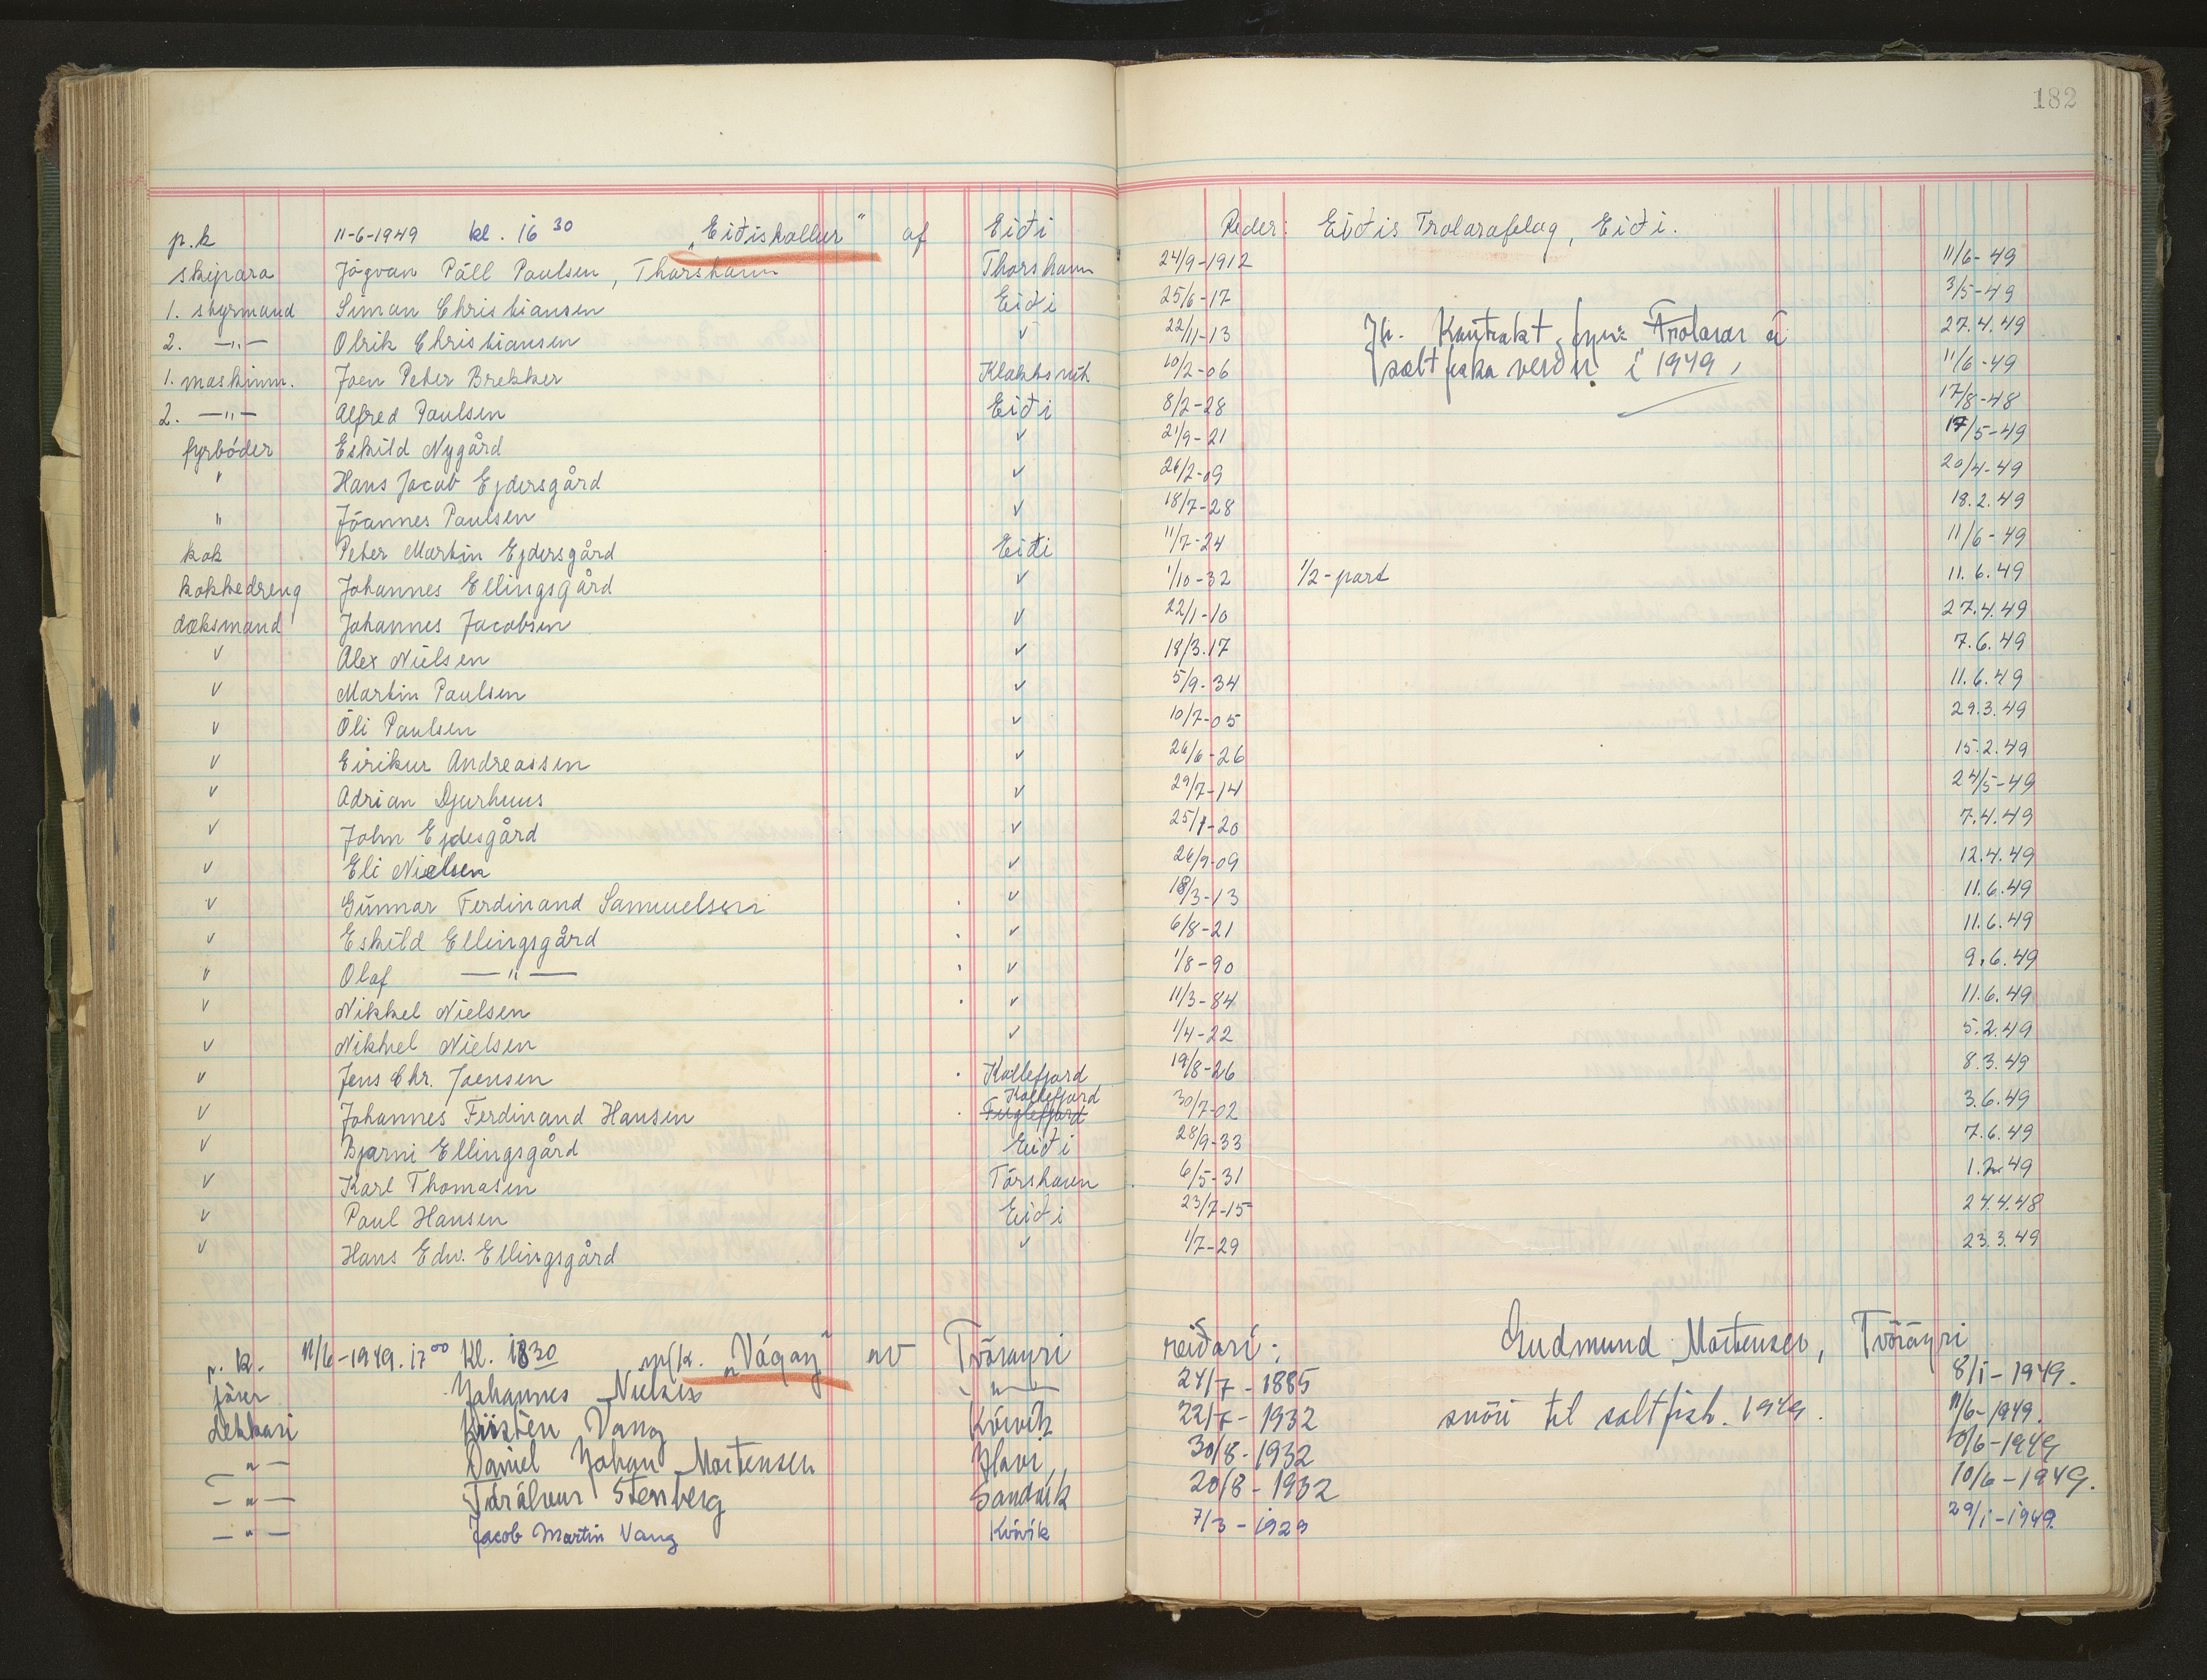 182
p.k 11-6-1949 kl. 16 30 "Eiðiskallur" af Eiði Reder: Eiðis Trolarafelag, Eiði.
skipara Jógvan Páll Paulsen, Thorshavn Thorshavn 24/9-1912 11/6-49
1. styrmand Simon Christiansen Eiði 25/6-17 3/5-49
2. —"— Olrik Christiansen v 22/11-13 Kontrakt fyri Trolarar á 27.4.49
1. maskinm. Joen Peter Brekker Klakksvik 10/2-06 saltfiska veiðu í 1949, 11/6-49
2. —"— Alfred Paulsen Eiði 8/2-28 17/8-48
fyrbóder Eskild Nygård v 21/9-21 17/5-49
" Hans Jacob Ejdersgård v 26/2-09 20/4-49
" Jóannes Paulsen v 18/7-28 18.2.49
kok Peter Martin Ejdersgård Eiði 11/7-24 11/6-49
kokkedreng Johannes Ellingsgård v 1/10-32 1/2-part 11.6.49
dæksmand Johannes Jacobsen v 22/1-10 27.4.49
v Alex Nielsen v 18/3.17 7.6.49
v Martin Paulsen v 5/9-34 11.6.49
v Óli Paulsen v 10/7-05 29.3.49
v Eirikur Andreassen v 26/6-26 15.2.49
v Adrian Djurhuus v 29/7-14 24/5-49
v John Ejdesgård v 25/1-20 7.4.49
v Eli Nielsen v 26/9-09 12.4.49
v Gunnar Ferdinand Samuelsen v 18/3-13 11.6.49
v Eskild Ellingsgård v 6/8-21 11.6.49
v Olaf —"— v 1/8-90 9.6.49
v Nikkel Nielsen v 11/3-84 11.6.49
v Nikkel Nielsen v 1/4-22 5.2.49
v Jens Chr. Joensen Kollefjord 19/8-26 8.3.49
Kollefjord
v Johannes Ferdinand Hansen Fuglefjord 30/7-02 3.6.49
v Bjarni Ellingsgård Eiði 28/9-33 7.6.49
v Karl Thomasen Tórshavn 6/5-31 1.2.49
v Paul Hansen Eiði 23/7-15 24.4.48
v Hans Edw. Ellingsgård v 1/7-29 23.3.49
p. k. 11/6-1949. 17 00 Kl. 1830 m/k. "Vágoy" av Tvöroyri reiðari: Gudmund Mortensen, Tvöroyri
förer Johannes Nielsen —"— 24/7-1885 8/1-1949.
dekkari Kristen Vang Kvívik 22/7-1932 snöri til saltfisk. 1949. 11/6-1949.
—"— Daniel Johan Mortensen 30/8-1932 10/6-1949
—"— Tórálvur Stenberg Sandvik 20/8-1932 10/6-1949.
—"— Jacob Martin Vang Kvívík 7/3-1929 29/1-1949.